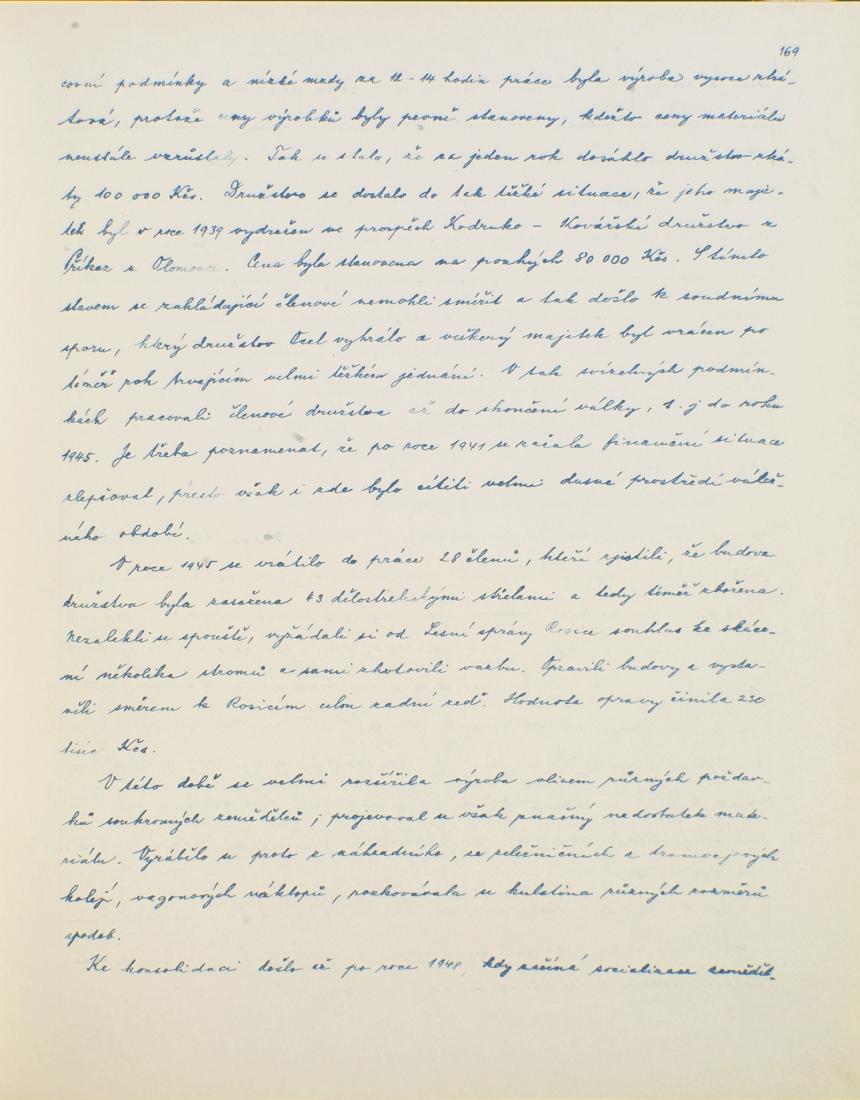 169
covní podmínky a nízké mzdy za 12 - 14 hodin práce byla výroba vysoce ztrá-
tová, protože ceny výrobků byly pevně stanoveny, kdežto ceny materiálu
neustále vzrůstaly. Tak se stalo, že za jeden rok dosáhlo družstvo ztrá-
ty 100 000 Kčs. Družstvo se dostalo do tak těžké situace, že jeho maje-
tek byl v roce 1939 vydražen ve prospěch Kodruko - Kovářské družstvo z
Příkaz u Olomouce. Cena byla stanovena na pouhých 80 000 Kčs. S tímto
stavem se zakládající členové nemohli smířit a tak došlo k soudnímu
sporu, který družstvo Ocel vyhrálo a veškerý majetek byl vrácen po
téměř rok trvajícím velmi těžkém jednání. V tak svízelných podmín-
kách pracovali členové družstva až do skončení války, t. j do roku
1945. Je třeba poznamenat, že po roce 1941 se začala finanční situace
zlepšovat, přesto však i zde bylo cítiti velmi dusné prostředí váleč-
ného období.
V roce 1945 se vrátilo do práce 28 členů, kteří zjistili, že budova
družstva byla zasažena 43 dělostřeleckými střelami a tedy téměř zbořena.
Nezalekli se spouště, vyžádali si od Lesní správy Rosice souhlas ke skáce-
ní několika stromů a sami zhotovili vazbu. Opravili budovy a vysta-
věli směrem k Rosicím celou zadní zeď. Hodnota opravy činila 230
tisíc Kčs.
V této době se velmi rozšířila výroba vlivem různých požadav-
ků soukromých zemědělců; projevoval se však značný nedostatek mate-
riálu. Vyrábělo se proto z náhradního, ze železničních a tramvajových
kolejí, vagonových náklopů, rozkovávala se kulatina různých rozměrů
spodob.
Ke konsolidaci došlo až po roce 1948, kdy začíná socialisace zeměděl-